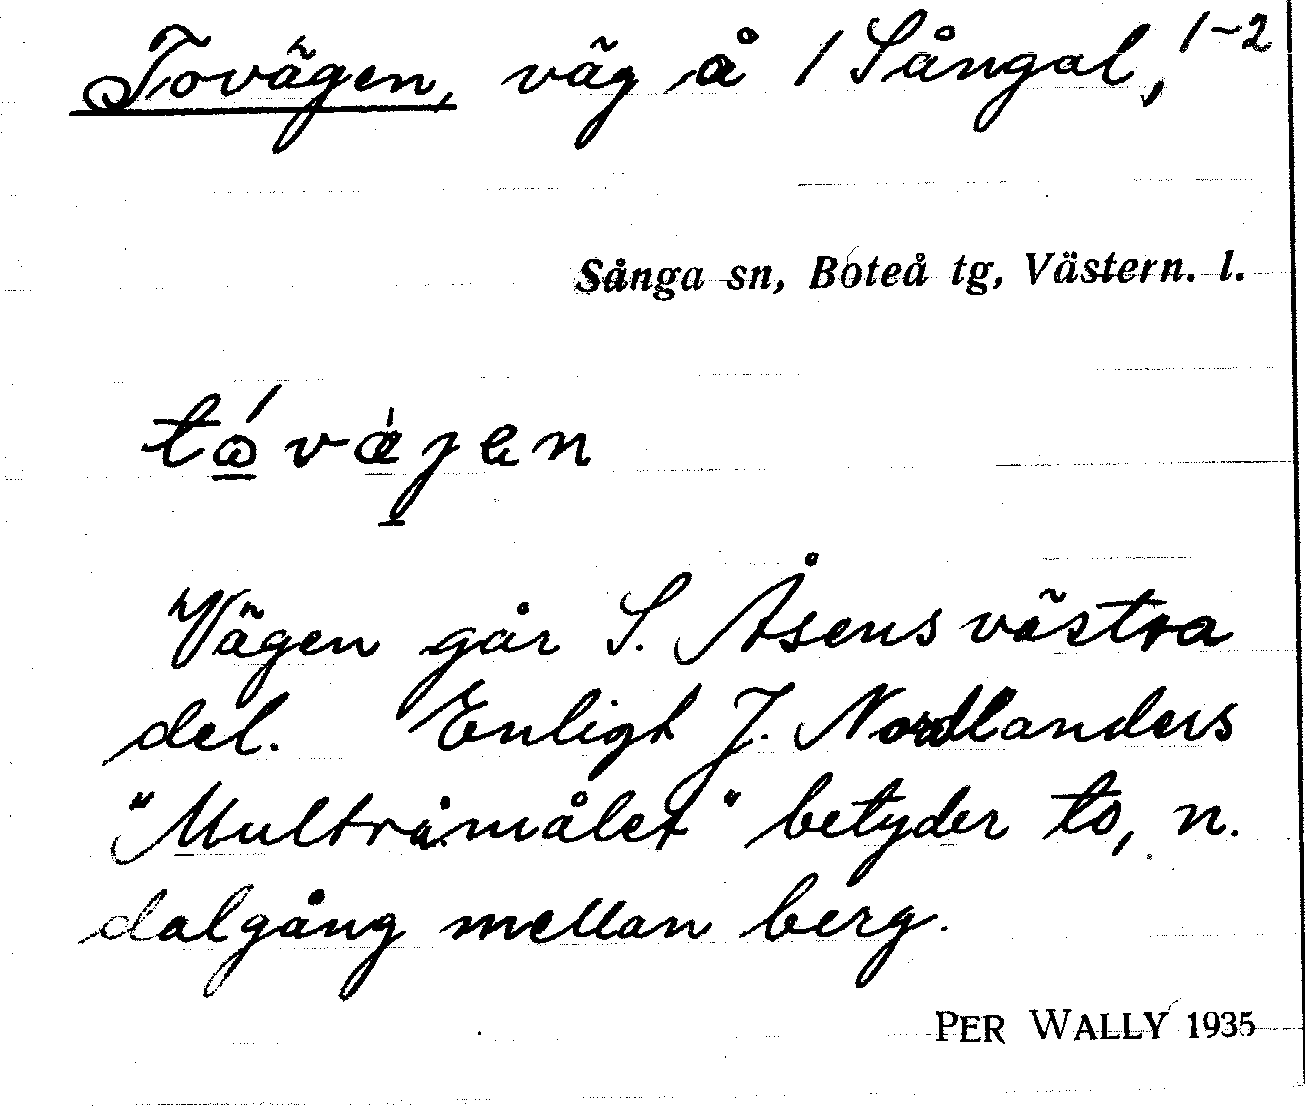 Tovägen, väg å 1 Sångal, 1-2
Sånga sn, Boteå tg, Västern. l.
Vägen går S. Åsens västra
del. Enligt J. Nordlanders
"Multråmålet" betyder to, n.
dalgång mellan berg.
PER WALLY 1935